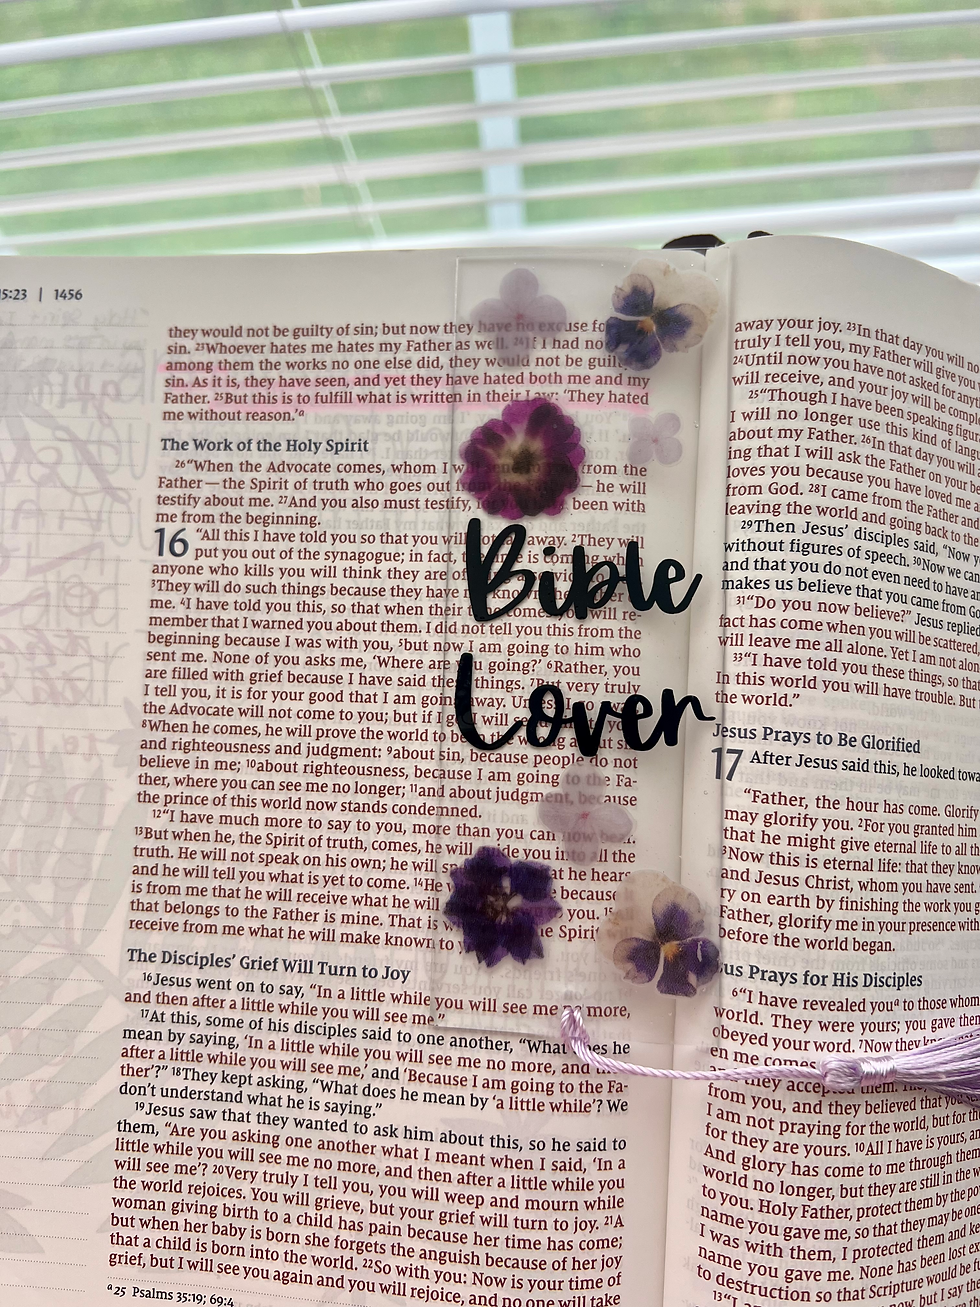 5:23 | 1456
they would not be guilty of sin; but now they have no excuse
sin. ²³Whoever hates me hates my Father as well. ²⁴If I had no
among them the works no one else did, they would not be
sin. As it is, they have seen, and yet they have hated both me and my
Father. ²⁵But this is to fulfill what is written in their Law: ‘They hated
me without reason.’ᵃ
The Work of the Holy Spirit
²⁶“When the Advocate comes, whom I from the
Father—the Spirit of truth who goes out — he will
testify about me. ²⁷And you also must testify, been with
me from the beginning.
16 “All this I have told you so that you will away. ²They will
put you out of the synagogue; in fact, is coming when
anyone who kills you will think they are
³They will do such things because they have
me. ⁴I have told you this, so that when their will re-
member that I warned you about them. I did not tell you this from the
beginning because I was with you, ⁵but now I am going to him who
sent me. None of you asks me, ‘Where are you going?’ ⁶Rather, you
are filled with grief because I have said these things. ⁷But very truly
I tell you, it is for your good that I am going away.
the Advocate will not come to you; but if I go, I will
⁸When he comes, he will prove the world to be
and righteousness and judgment: ⁹about sin, because people do not
believe in me; ¹⁰about righteousness, because I am going to the Fa-
ther, where you can see me no longer; ¹¹and about judgment, because
the prince of this world now stands condemned.
¹²“I have much more to say to you, more than you can now bear.
¹³But when he, the Spirit of truth, comes, he will guide you into all the
truth. He will not speak on his own; he will at he hears,
and he will tell you what is yet to come. ¹⁴He because
is from me that he will receive what he will you.
that belongs to the Father is mine. That is the Spirit
receive from me what he will make known to
The Disciples’ Grief Will Turn to Joy
¹⁶Jesus went on to say, “In a little while you will see me no more,
and then after a little while you will see me.”
¹⁷At this, some of his disciples said to one another, “What does he
mean by saying, ‘In a little while you will see me no more, and then
after a little while you will see me,’ and ‘Because I am going to the Fa-
ther’?” ¹⁸They kept asking, “What does he mean by ‘a little while’? We
don’t understand what he is saying.”
¹⁹Jesus saw that they wanted to ask him about this, so he said to
them, “Are you asking one another what I meant when I said, ‘In a
little while you will see me no more, and then after a little while you
will see me’? ²⁰Very truly I tell you, you will weep and mourn while
the world rejoices. You will grieve, but your grief will turn to joy. ²¹A
woman giving birth to a child has pain because her time has come;
but when her baby is born she forgets the anguish because of her joy
that a child is born into the world. ²²So with you: Now is your time of
grief, but I will see you again and you will rejoice, and no one will take
ᵃ 25 Psalms 35:19; 69:4
Bible
Lover
away your joy. ²³In that day you will no
truly I tell you, my Father will give you
²⁴Until now you have not asked for
will receive, and your joy will be
²⁵“Though I have been speaking
I will no longer use this kind of
about my Father. ²⁶In that day you will
ing that I will ask the Father on your
loves you because you have loved me
from God. ²⁸I came from the Father and
leaving the world and going back to the
²⁹Then Jesus’ disciples said, “Now
without figures of speech. ³⁰Now we can
and that you do not even need to have
makes us believe that you came from
³¹“Do you now believe?” Jesus replied
fact has come when you will be scattered,
will leave me all alone. Yet I am not
³³“I have told you these things, so
In this world you will have trouble. But
the world.”
Jesus Prays to Be Glorified
17 After Jesus said this, he looked
“Father, the hour has come. Glorify
may glorify you. ²For you granted him
that he might give eternal life to all
³Now this is eternal life: that they know
and Jesus Christ, whom you have sent.
ry on earth by finishing the work you
Father, glorify me in your presence with
before the world began.
Prays for His Disciples
⁶“I have revealed youᵃ to those whom
world. They were yours; you gave them
obeyed your word. ⁷Now they
en me comes
and they accepted them.
from you, and they believed that you
I am not praying for the world, but for
for they are yours. ¹⁰All I have is yours,
And glory has come to me through
world no longer, but they are still in the
to you. Holy Father, protect them by the
name you gave me, so that they may be
I was with them, I protected them and
name you gave me. None has been lost
to destruction so that Scripture would be
¹³“I but I say